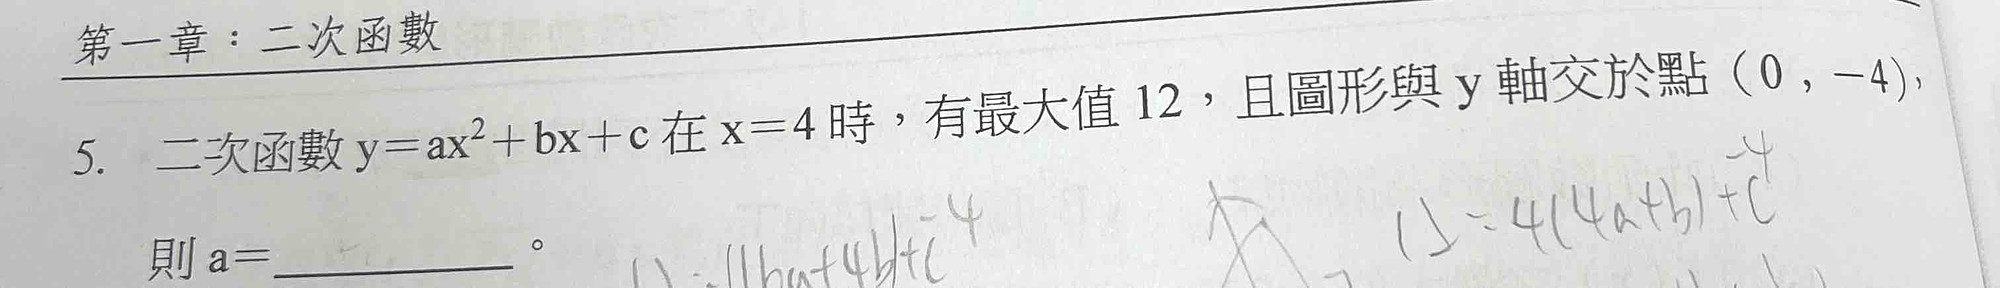 第一章：二次函數
5. 二次函數 y＝ax²＋bx＋c 在 x＝4 時，有最大值 12，且圖形與 y 軸交於點（0，－4），
-4
12=4(4a+b)+c
則 a＝＿＿＿＿＿。
-4
12=16a+4b+c